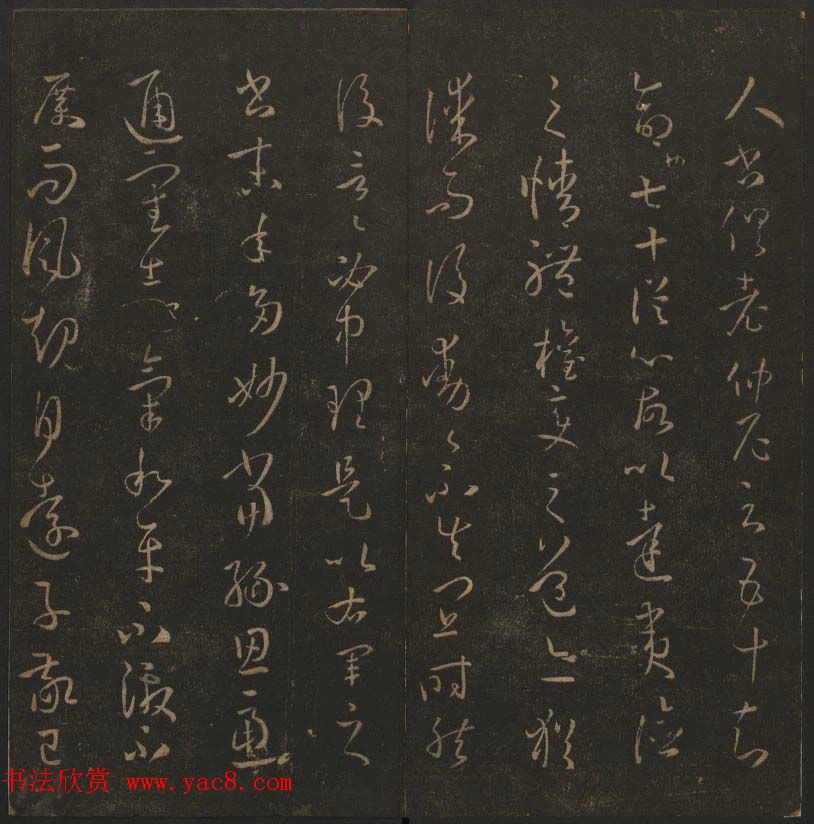 人書俱老仲尼云五十知
命七十從心故以達夷險
之情體權變之道亦猶
謀而後動〻不失宜時然
後言〻必中理是以右軍之
書末年多妙當緣思慮
通審志氣和平不激不
厲而風規自遠子敬已
书法欣赏 www.yac8.com